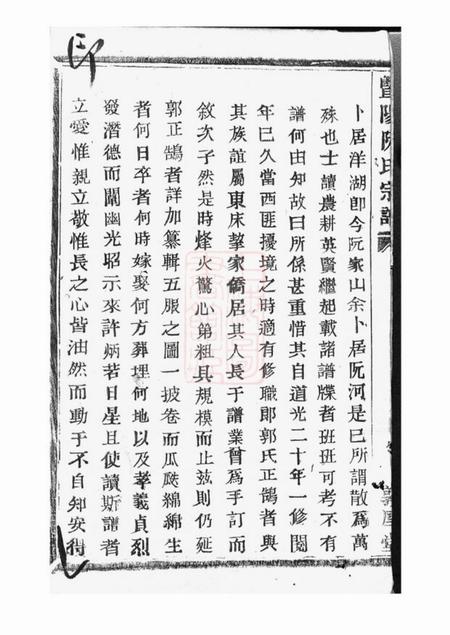 暨陽阮氏宗譜
卜居洋湖卽今阮家山余卜居阮河是已所謂散爲萬
殊也士讀農耕英賢繼起載諸譜牒者班班可考不有
譜何由知故曰所係甚重惜其自道光二十年一修閱
年已久當西匪擾境之時適有修職郎郭氏正鵠者與
其族誼屬東床挈家僑居其人長于譜業曾爲手訂而
敘次孑然是時烽火驚心弟粗具規模而止茲則仍延
郭正鵠者詳加纂輯五服之圖一披卷而瓜瓞綿綿生
者何日卒者何時嫁娶何方葬埋何地以及孝義貞烈
發潛德而闡幽光昭示來許炳若日星且使讀斯譜者
立愛惟親立敬惟長之心皆油然而動于不自知安得
印